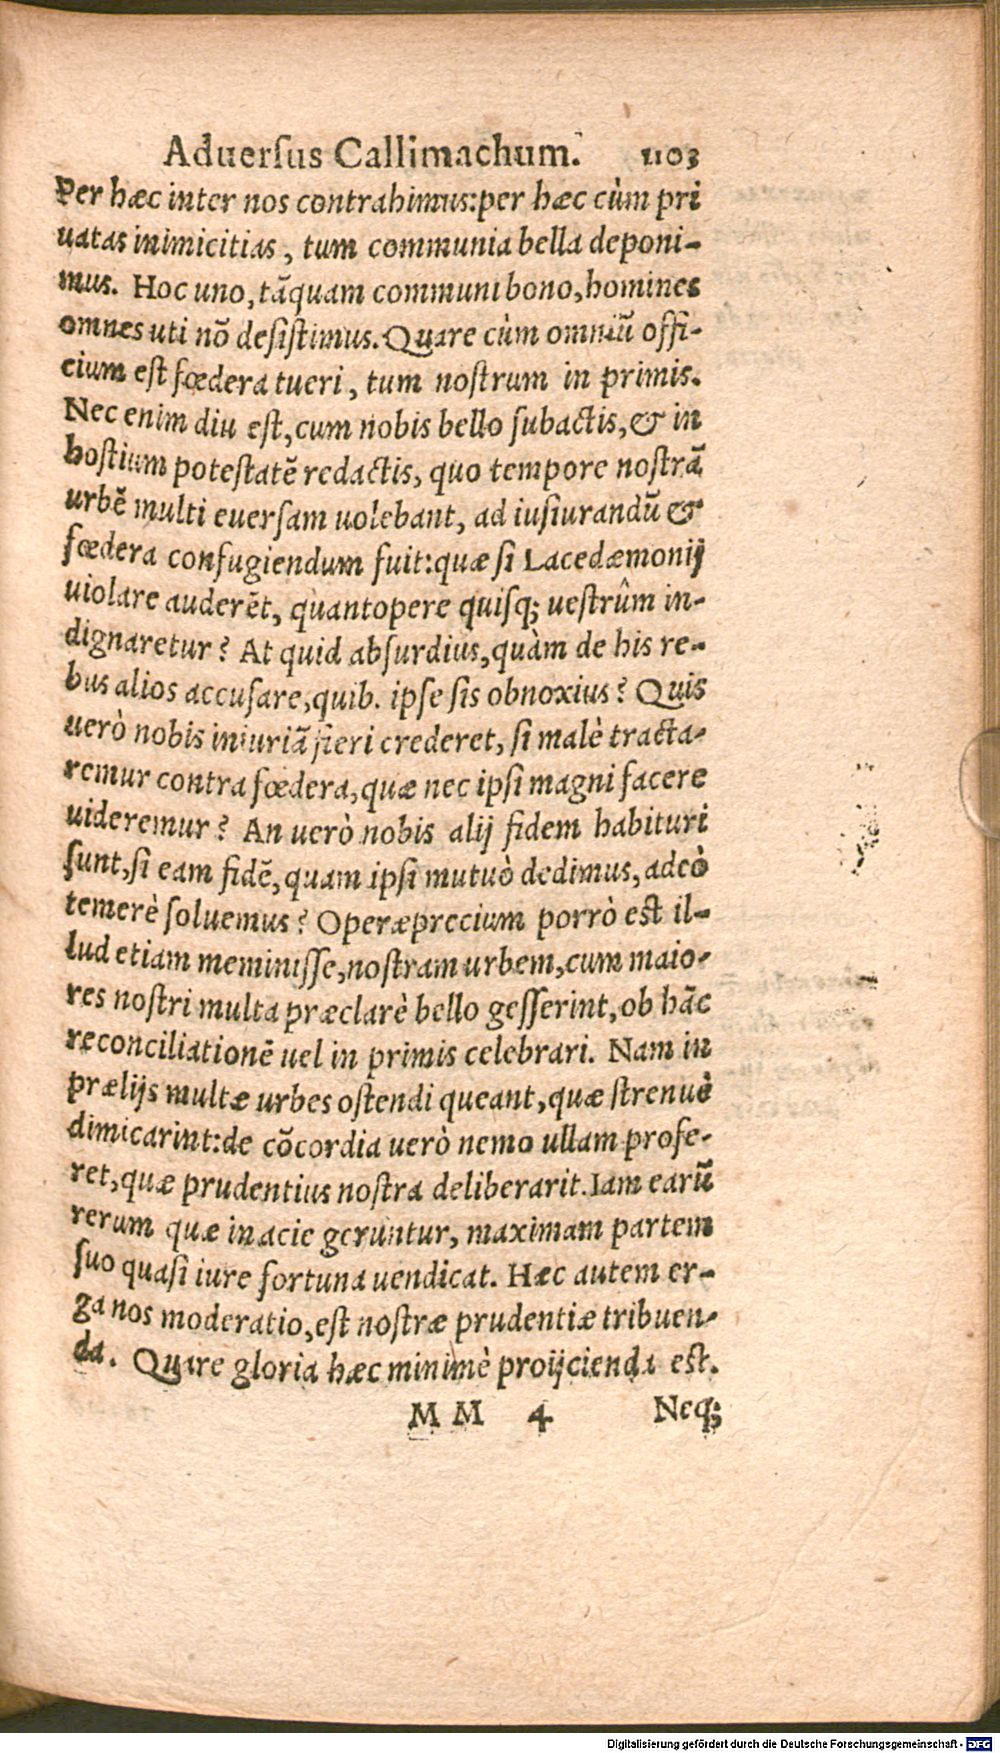 Aduerſus Callimachum. 1103
Per hæc inter nos contrahimus:per hæc cùm pri
uatas inimicitias, tum communia bella deponi-
mus. Hoc uno, tãquam communi bono, homines
omnes uti nõ deſiſtimus. Quare cùm omniũ offi-
cium est fœdera tueri, tum noſtrum in primis.
Nec enim diu eſt, cum nobis bello ſubactis, & in
hoſtium poteſtatẽ redactis, quo tempore noſtrã
urbẽ multi euerſam uolebant, ad iuſiurandũ &
fœdera confugiendum fuit:quæ ſi Lacedæmonij
uiolare auderẽt, quantopere quiſq; ueſtrûm in-
dignaretur? At quid abſurdius, quàm de his re-
bus alios accuſare, quib. ipſe ſis obnoxius? Quis
uerò nobis iniuriã fieri crederet, ſi malè tracta-
remur contra fœdera, quæ nec ipſi magni facere
uideremur? An uerò nobis alij fidem habituri
ſunt, ſi eam fidẽ, quam ipſi mutuò dedimus, adeò
temerè ſoluemus? Operæprecium porrò est il-
lud etiam meminiſſe, noſtram urbem, cum maio-
res noſtri multa præclarè bello geſſerint, ob hãc
reconciliationẽ uel in primis celebrari. Nam in
prælijs multæ urbes oſtendi queant, quæ ſtrenuè
dimicarint:de cõcordia uerò nemo ullam profe-
ret, quæ prudentius noſtra deliberarit. Iam earũ
rerum quæ in acie geruntur, maximam partem
ſuo quaſi iure fortuna uendicat. Hæc autem er-
ga nos moderatio, eſt noſtræ prudentiæ tribuen-
da. Quare gloria hæc minimè proijcienda est.
M M 4 Neq;
Digitalisierung gefördert durch die Deutsche Forschungsgemeinschaft - DFG